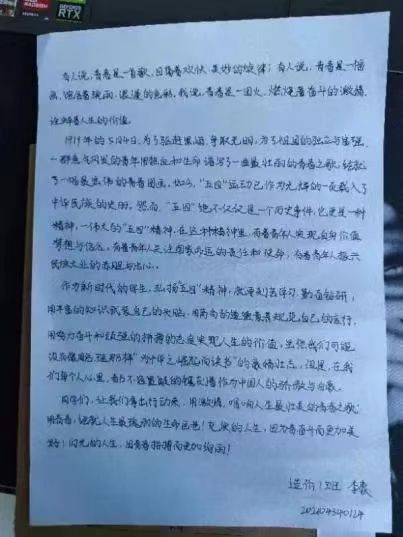 RADEON
RTX
有人说，青春是一首歌，回荡着欢快、美妙的旋律；有人说，青春是一幅
画，饱含着瑰丽、浪漫的色彩。我说，青春是一团火，燃烧着奋斗的激情，
诠释着人生的价值。
1919年的5月4日，为了驱赶黑暗、争取光明，为了祖国的独立与富强，
一群意气风发的青年用热血和生命谱写了一曲最壮丽的青春之歌，绘就
了一幅最宏伟的青春图画。如今，“五四”运动已作为光辉的一页载入了
中华民族的史册。然而，“五四”绝不仅仅是一个历史事件，它更是一种
精神，一伟大的“五四”精神，在这种精神里，有着青年人实现自身价值
梦想与信念，有着青年人关注国家命运的责任和使命，有着青年人振兴
民族大业的志愿与决心。
作为新时代的学生，弘扬“五四”精神，就要刻苦学习、勤奋钻研，
用丰富的知识武装自己的头脑，用高尚的道德情操规范自己的言行，
用努力奋斗和顽强的拼搏的态度实现人生的价值，虽然我们可能
没有像周总理那样“为中华之崛起而读书”的豪情壮志，但是，在我
们每个人心里，都不容置疑的镌刻着作为中国人的骄傲与自豪。
同学们，让我们拿出行动来，用激情，唱响人生最壮美的青春之歌；
用青春，绘就人生最瑰丽的生命画卷！充实的人生，因为奋斗而更加美
好；闪光的人生，因为拼搏而更加绚丽！
造价1班 李
202404340124